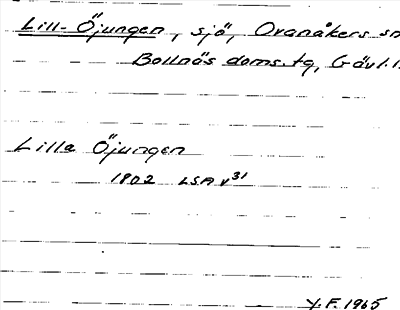 Lill-Öjungen, sjö, Ovanåkers sn
Bollnäs doms.tg, Gävl.l.
Lilla Öjungen
1802 LSA v31
Y.F. 1965